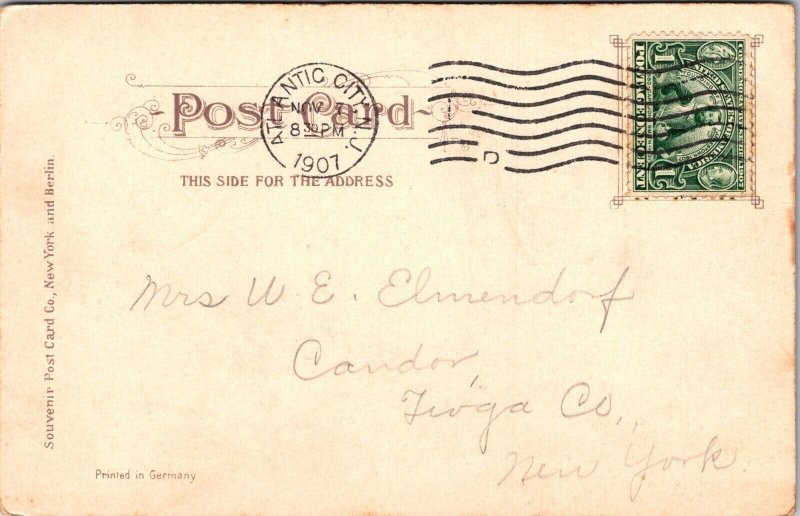 Post Card
THIS SIDE FOR THE ADDRESS
ATLANTIC CITY, N.J.
NOV 7
8 30 PM
1907
D
Mrs W E. Elmendorf
Candor,
Tioga Co,
New York.
Souvenir Post Card Co., New York and Berlin.
Printed in Germany